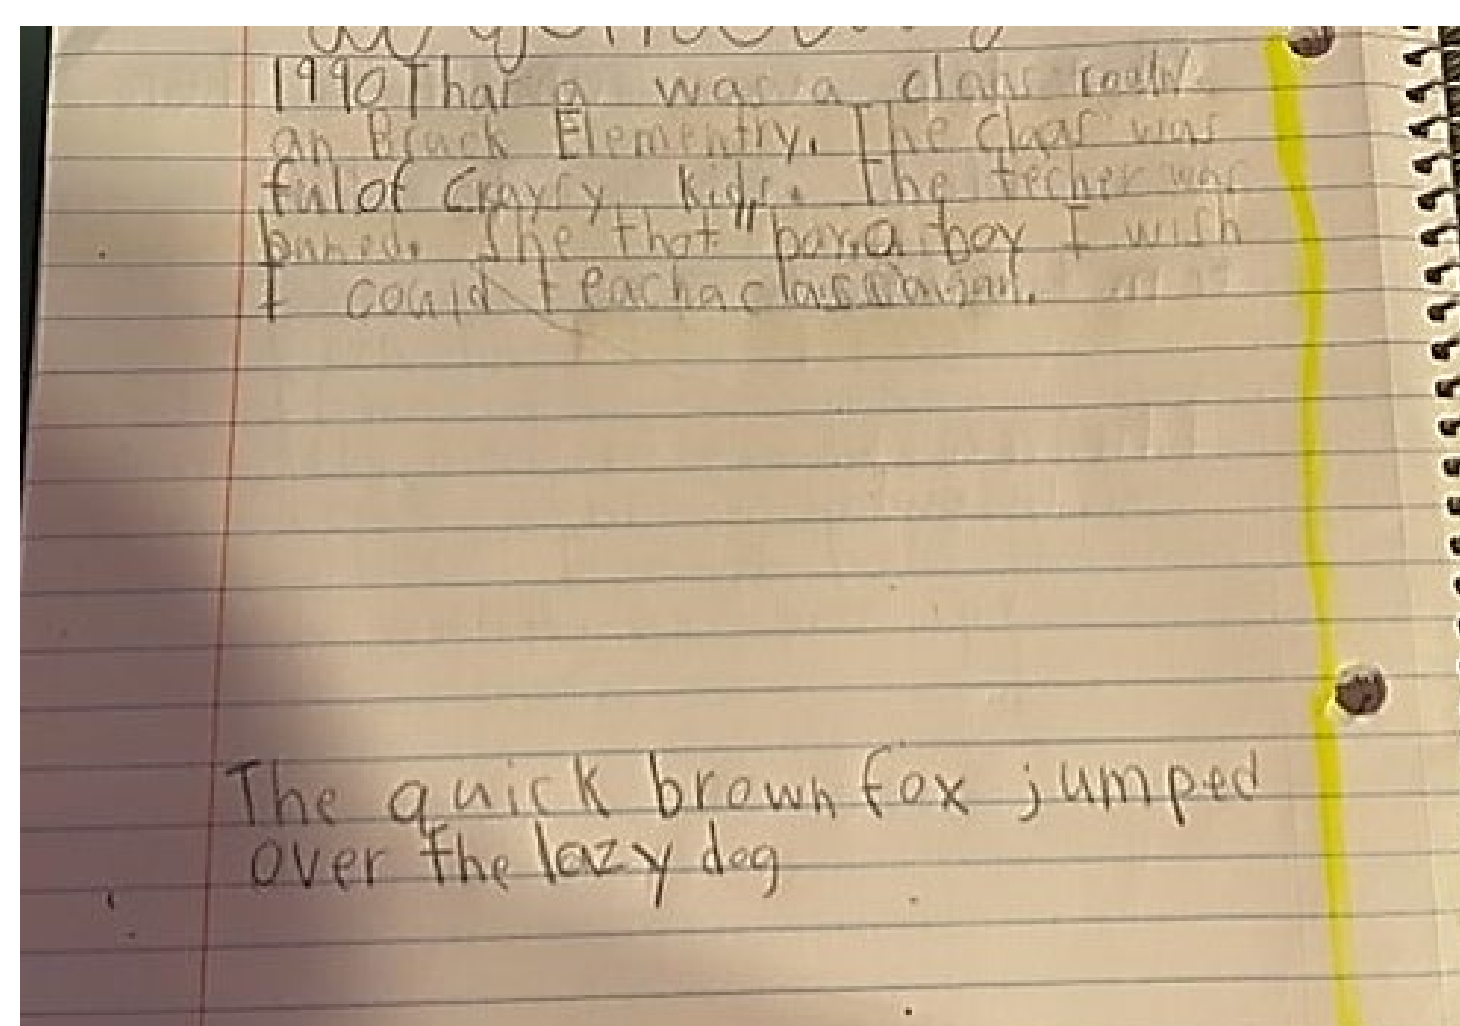 1990 Thar a was a class
an Bruck Elementry. The claas was
ful of Crayry kids. The techer was
She that "boy, o boy I wish
I could teach a class
The quick brown fox jumped
over the lazy dog